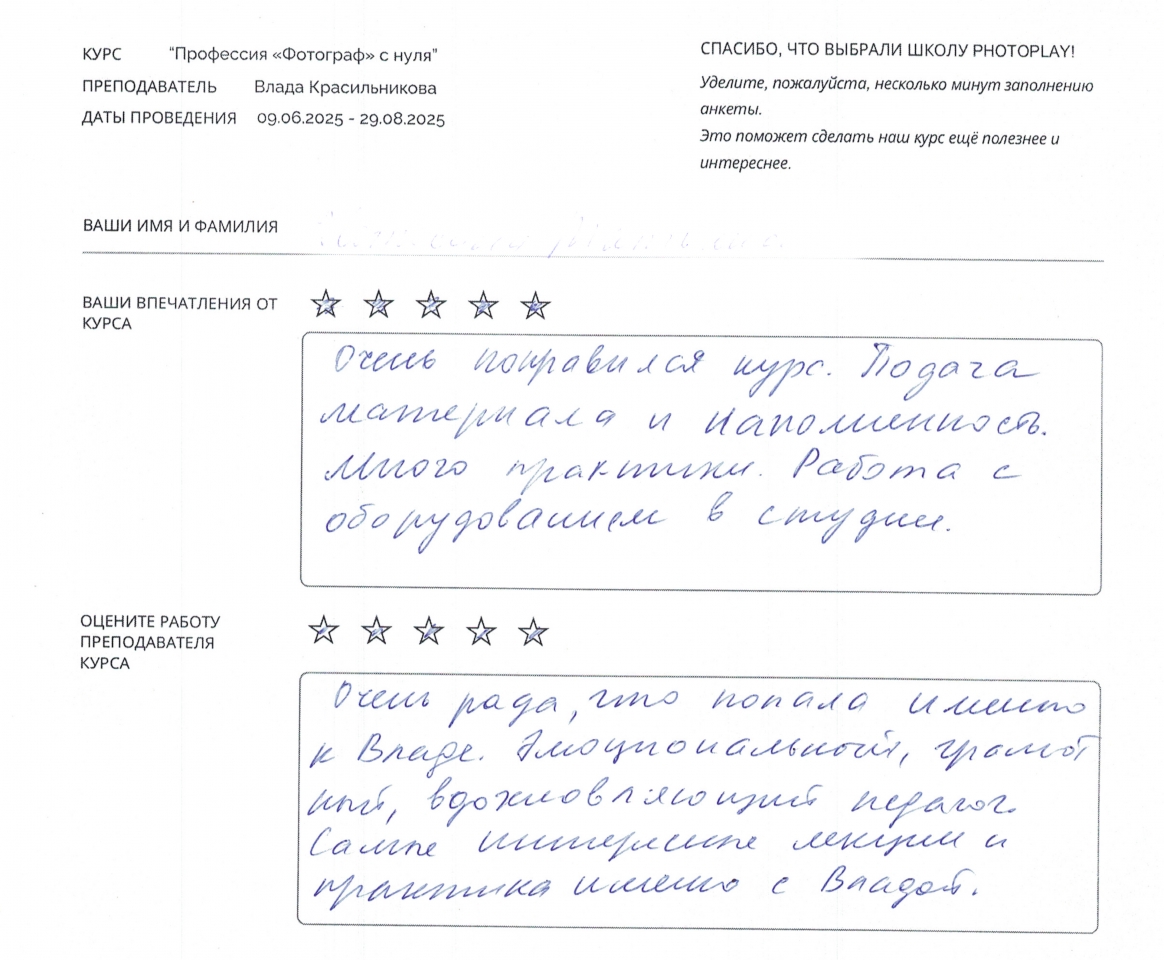 КУРС "Профессия «Фотограф» с нуля"
ПРЕПОДАВАТЕЛЬ Влада Красильникова
ДАТЫ ПРОВЕДЕНИЯ 09.06.2025 - 29.08.2025
СПАСИБО, ЧТО ВЫБРАЛИ ШКОЛУ PHOTOPLAY!
Уделите, пожалуйста, несколько минут заполнению
анкеты.
Это поможет сделать наш курс ещё полезнее и
интереснее.
ВАШИ ИМЯ И ФАМИЛИЯ
ВАШИ ВПЕЧАТЛЕНИЯ ОТ
КУРСА
Очень понравился курс. Подача
материала и наполненность.
Много практики. Работа с
оборудованием в студии.
ОЦЕНИТЕ РАБОТУ
ПРЕПОДАВАТЕЛЯ
КУРСА
Очень рада, что попала именно
к Владе. Эмоциональный, грамот
ный, вдохновляющий педагог.
Самые интересные лекции и
практика именно с Владой.